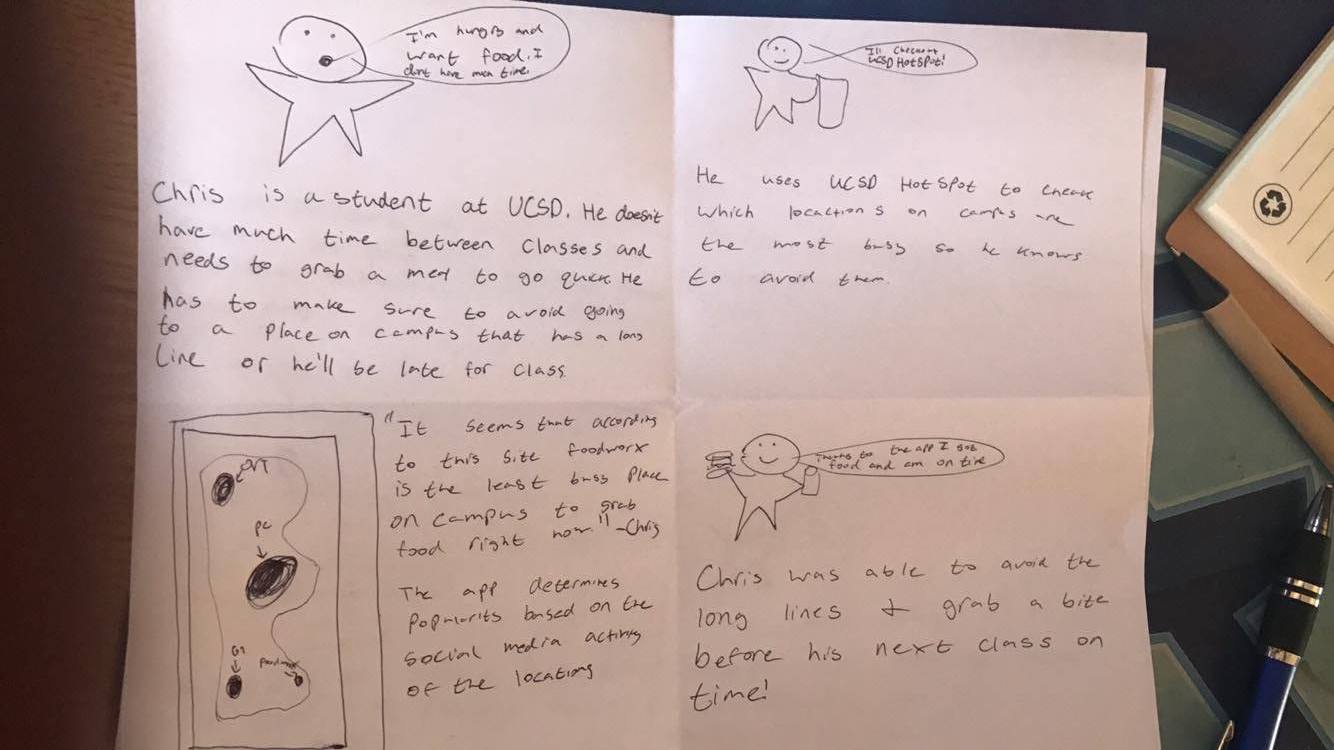 I'm hungry and
want food. I
dont have much time.
Chris is a student at UCSD. He doesn't
have much time between classes and
needs to grab a meal to go quick. He
has to make sure to avoid going
to a place on campus that has a long
line or he'll be late for class
I'll checkout
UCSD HotSpot!
He uses UCSD HotSpot to check
which locations on campus are
the most busy so he knows
to avoid them.
OVT
PC
"It seems that according
to this site foodworx
is the least busy place
on campus to grab
food right now" -Chris
The app determines
popularity based on the
social media activity
of the locations
Thanks to the app I got
food and am on time
Chris was able to avoid the
long lines + grab a bite
before his next class on
time!